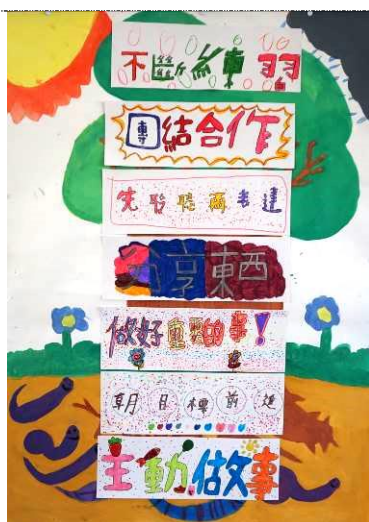 不斷練習
團結合作
先聆聽再表達
分享東西
做好自己的事!
朝目標前進
主動做事